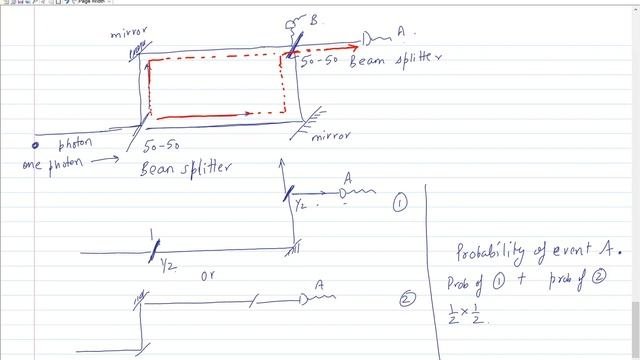 Page Width
B.
A.
mirror
50-50 Beam splitter
photon
one photon
50-50
Beam splitter
mirror
A
1/2
1
1
1/2
or
A
2
Probability of event A.
Prob of 1 + prob of 2
1/2 x 1/2